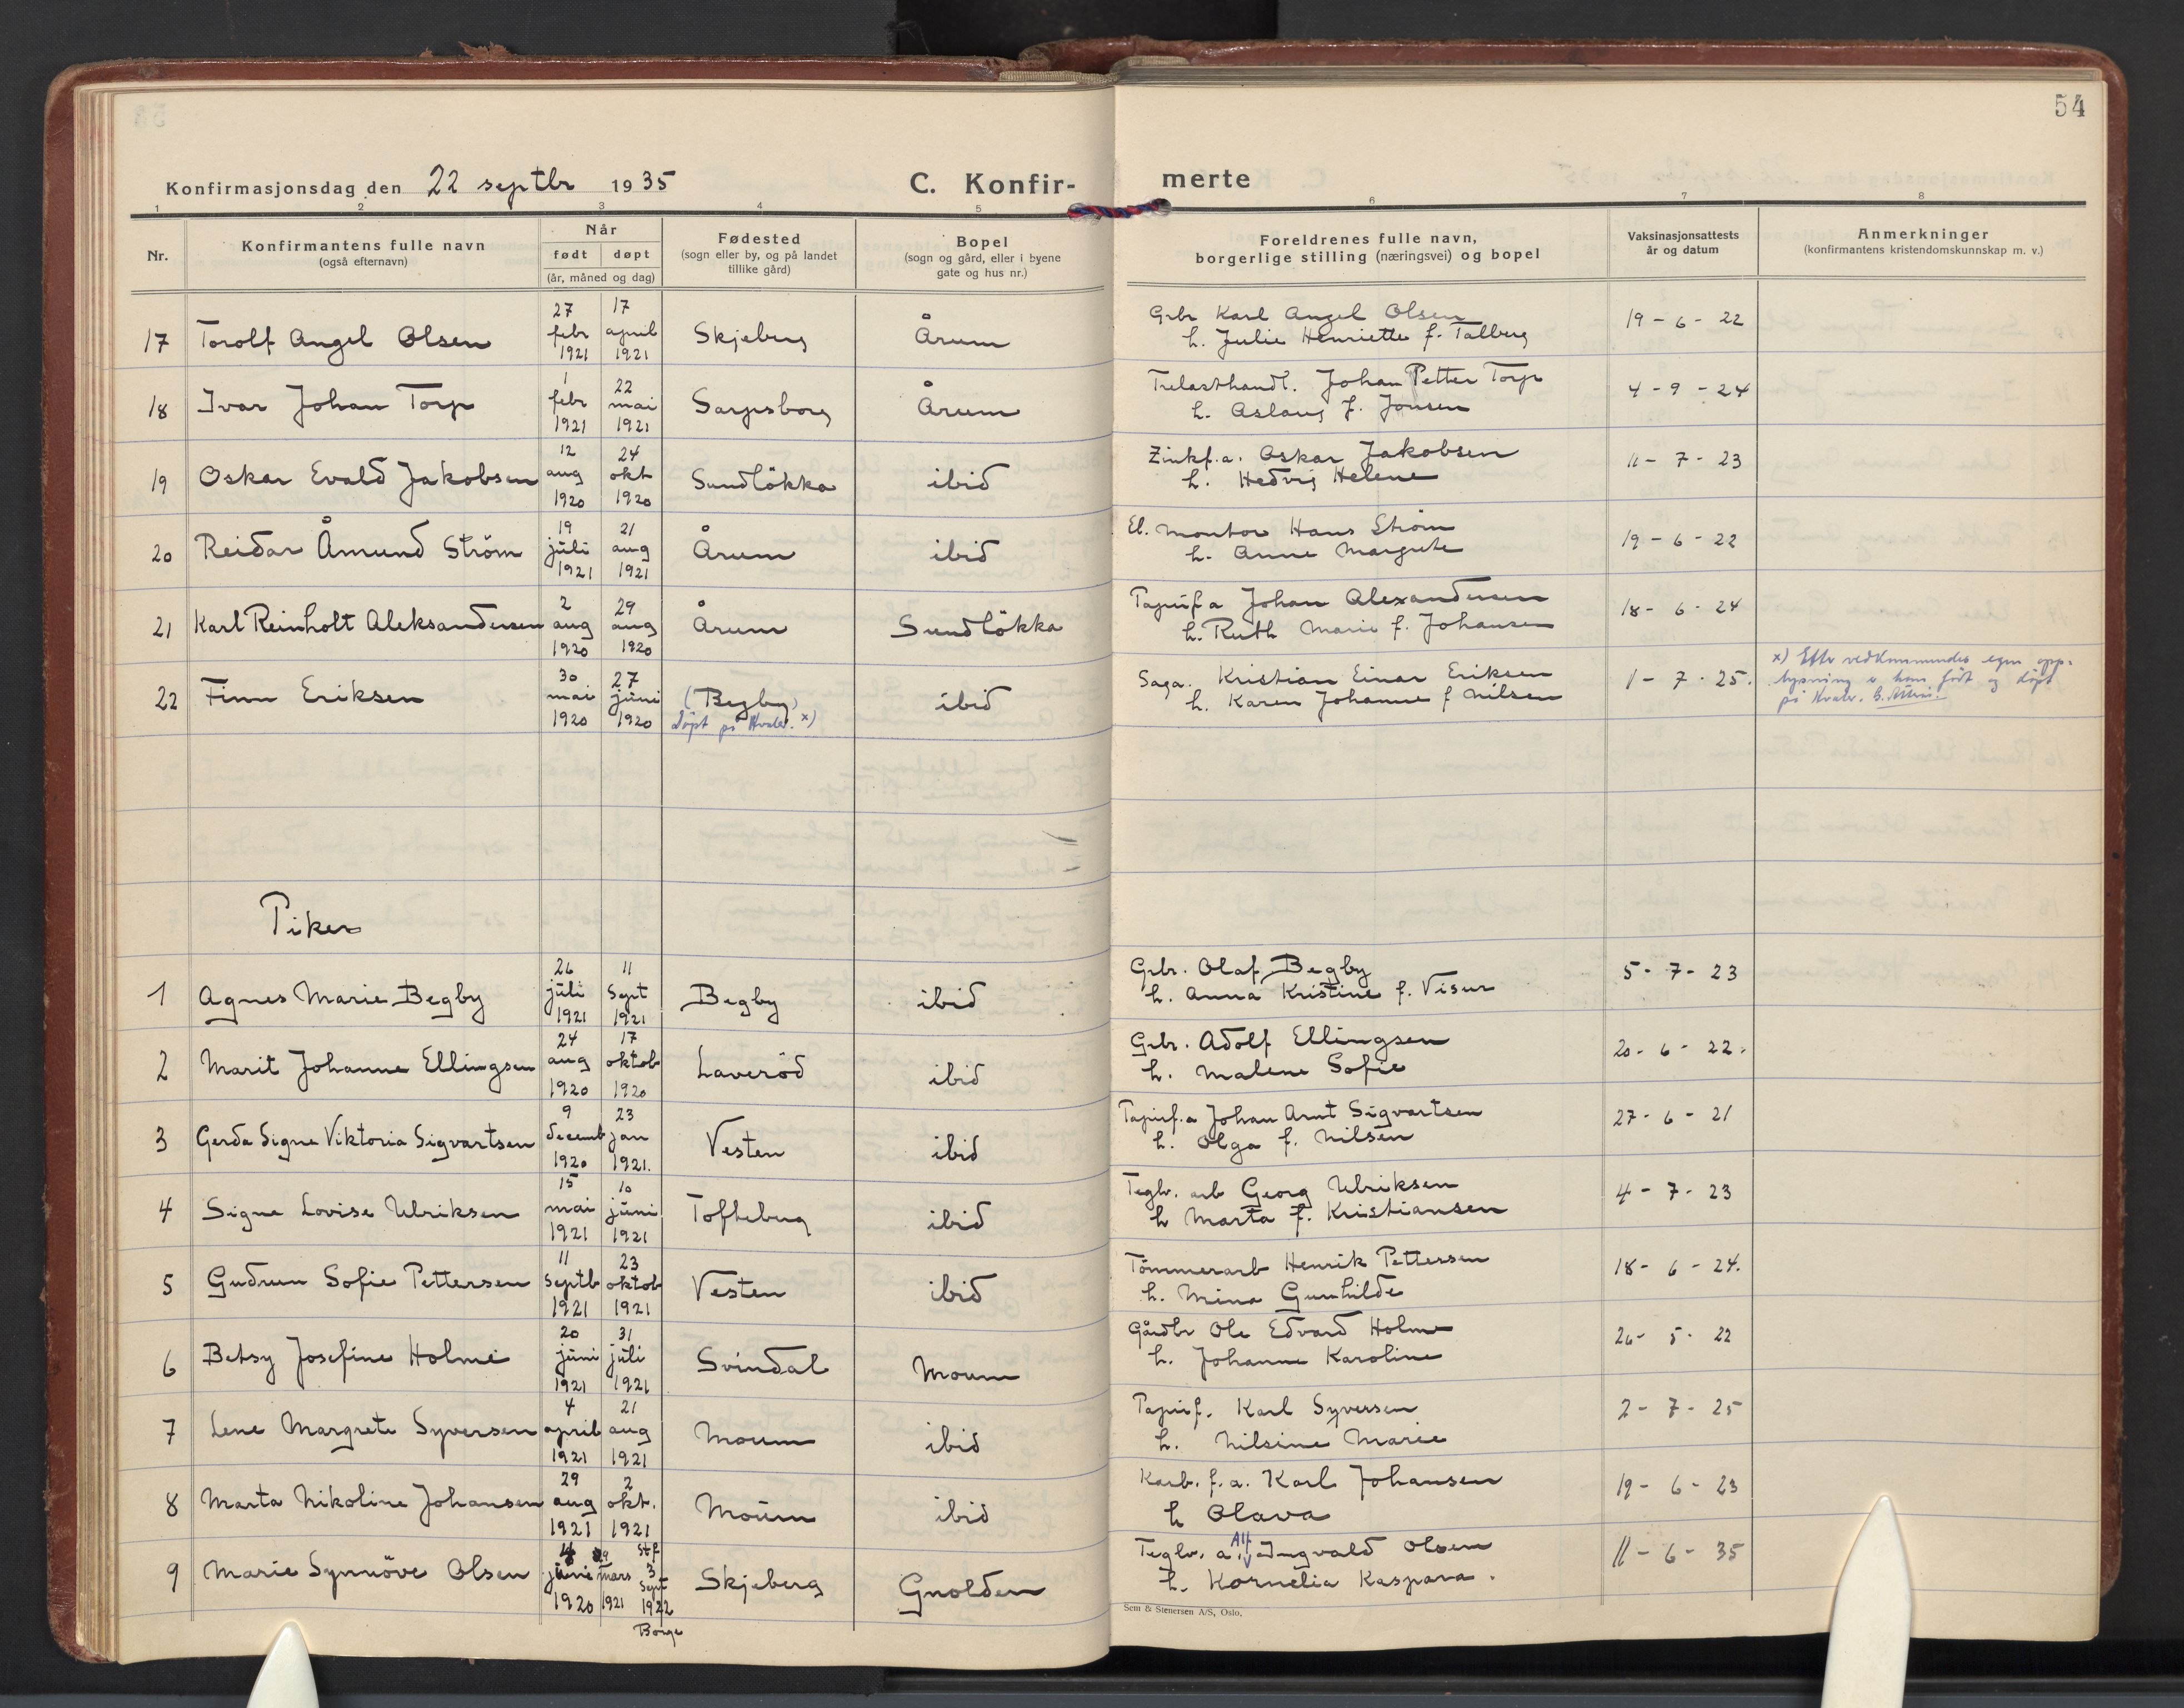 54
Konfirmasjonsdag den 22 septbr 1935 C. Konfir- merte
1 2 3 4 5 6 7 8
Nr. Konfirmantens fulle navn (også efternavn) Når født døpt (år, måned og dag) Fødested (sogn eller by, og på landet tillike gård) Bopel (sogn og gård, eller i byene gate og hus nr.) Foreldrenes fulle navn, borgerlige stilling (næringsvei) og bopel Vaksinasjonsattests år og datum Anmerkninger (konfirmantens kristendomskunnskap m. v.)
17 Torolf Angel Olsen 27 febr 1921 17 april 1921 Skjeberg Årum Grbr Karl Angel Olsen h. Julie Henriette f. Talberg 19 - 6 - 22
18 Ivar Johan Torp 1 febr 1921 22 mai 1921 Sarpsborg Årum Trelasthandl. Johan Petter Torp h. Aslaug f. Jonsen 4 - 9 - 24
19 Oskar Evald Jakobsen 12 aug 1920 24 okt 1920 Sundlökka ibid Zinkf.a. Oskar Jakobsen h. Hedvig Helene 11 - 7 - 23
20 Reidar Åmund Ström 19 juli 1921 21 aug 1921 Årum ibid El. montör Hans Ström h. Anne Margrete 19 - 6 - 22
21 Karl Reinholt Aleksandersen 2 aug 1920 29 aug 1920 Årum Sundlökka Papirf a Johan Alexandersen h. Ruth Marie f. Johansen 18 - 6 - 24
22 Finn Eriksen 30 mai 1920 27 juni 1920 (Begby) döpt på Hvaler. x) ibid Saga. Kristian Einar Eriksen h. Karen Johanne f Nilsen 1 - 7 - 25. x) Eftr vedkommendes egen opp- lysning er han födt og döpt på Hvaler.
Piker
1 Agnes Marie Begby 26 juli 1921 11 Sept 1921 Begby ibid Grbr. Olaf Begby h. Anna Kristine f. Visur 5 - 7 - 23
2 Marit Johanne Ellingsen 24 aug 1920 17 oktob 1920 Laveröd ibid Grbr. Adolf Ellingsen h. Malene Sofie 20 - 6 - 22.
3 Gerda Signe Viktoria Sigvartsen 9 decemb 1920 23 jan 1921. Vesten ibid Papirf.a Johan Arnt Sigvartsen h. Olga f. Nilsen 27 - 6 - 21
4 Signe Lovise Ulriksen 15 mai 1921 10 juni 1921 Tofteberg ibid Teglv. arb Georg Ulriksen h Marta f. Kristiansen 4 - 7 - 23
5 Gudrun Sofie Pettersen 11 Septb 1921 23 oktob 1921 Vesten ibid Tömmerarb Henrik Pettersen h. Mina Gunhilde 18 - 6 - 24.
6 Betsy Josefine Holme 20 juni 1921 31 juli 1921 Svindal Moum Gårdbr Ole Edvard Holme h. Johanne Karoline 26 - 5 - 22
7 Lene Margrete Syversen 4 april 1921 21 aug 1921 Moum ibid Papirf. Karl Syversen h. Nilsine Marie 2 - 7 - 25
8 Marta Nikoline Johansen 29 aug 1921 2 okt. 1921 Moum ibid Karb. f. a. Karl Johansen h Olava 19 - 6 - 23
9 Marie Synnöve Olsen 4 juni 1920 29 mars 1921 st.f 3 Sept 1922 Borge Skjeberg Gnolden Teglv. a. Alf Ingvald Olsen h. Kornelia Kaspara. 11 - 6 - 35
Sem & Stenersen A/S, Oslo.